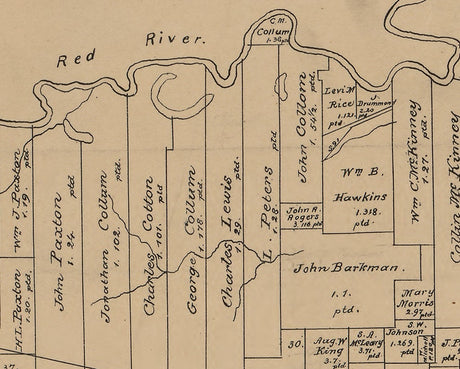 Red River.
C.M.
Collum
1.36 ptd.
Levi M
Rice
1.121.
ptd
J.
Drummond
2.20
ptd
S.21
John Collom
1. 54½. ptd.
Wm C. McKinney
1.27. ptd.
Collin McKinney
Wm J. Paxton
1.19 ptd
John Paxton
1. 24. ptd.
Jonathan Collum
1. 102. ptd.
Charles Cotton
1.101. ptd
George Collum
1.378. ptd.
Charles Lewis
1. 29. ptd.
L. Peters
1.28. ptd.
Wm B.
Hawkins
1.318.
ptd.
John A.
Rogers
3.116 ptd
John Barkman.
1. 1.
ptd.
H.L. Paxton
1.20. ptd.
Mary
Morris
2.97. ptd
S. W.
Johnson
1.269.
ptd
30.
Aug. W
King
3.7.
S. A.
McLeary
3.71.
ptd
J. P.
37